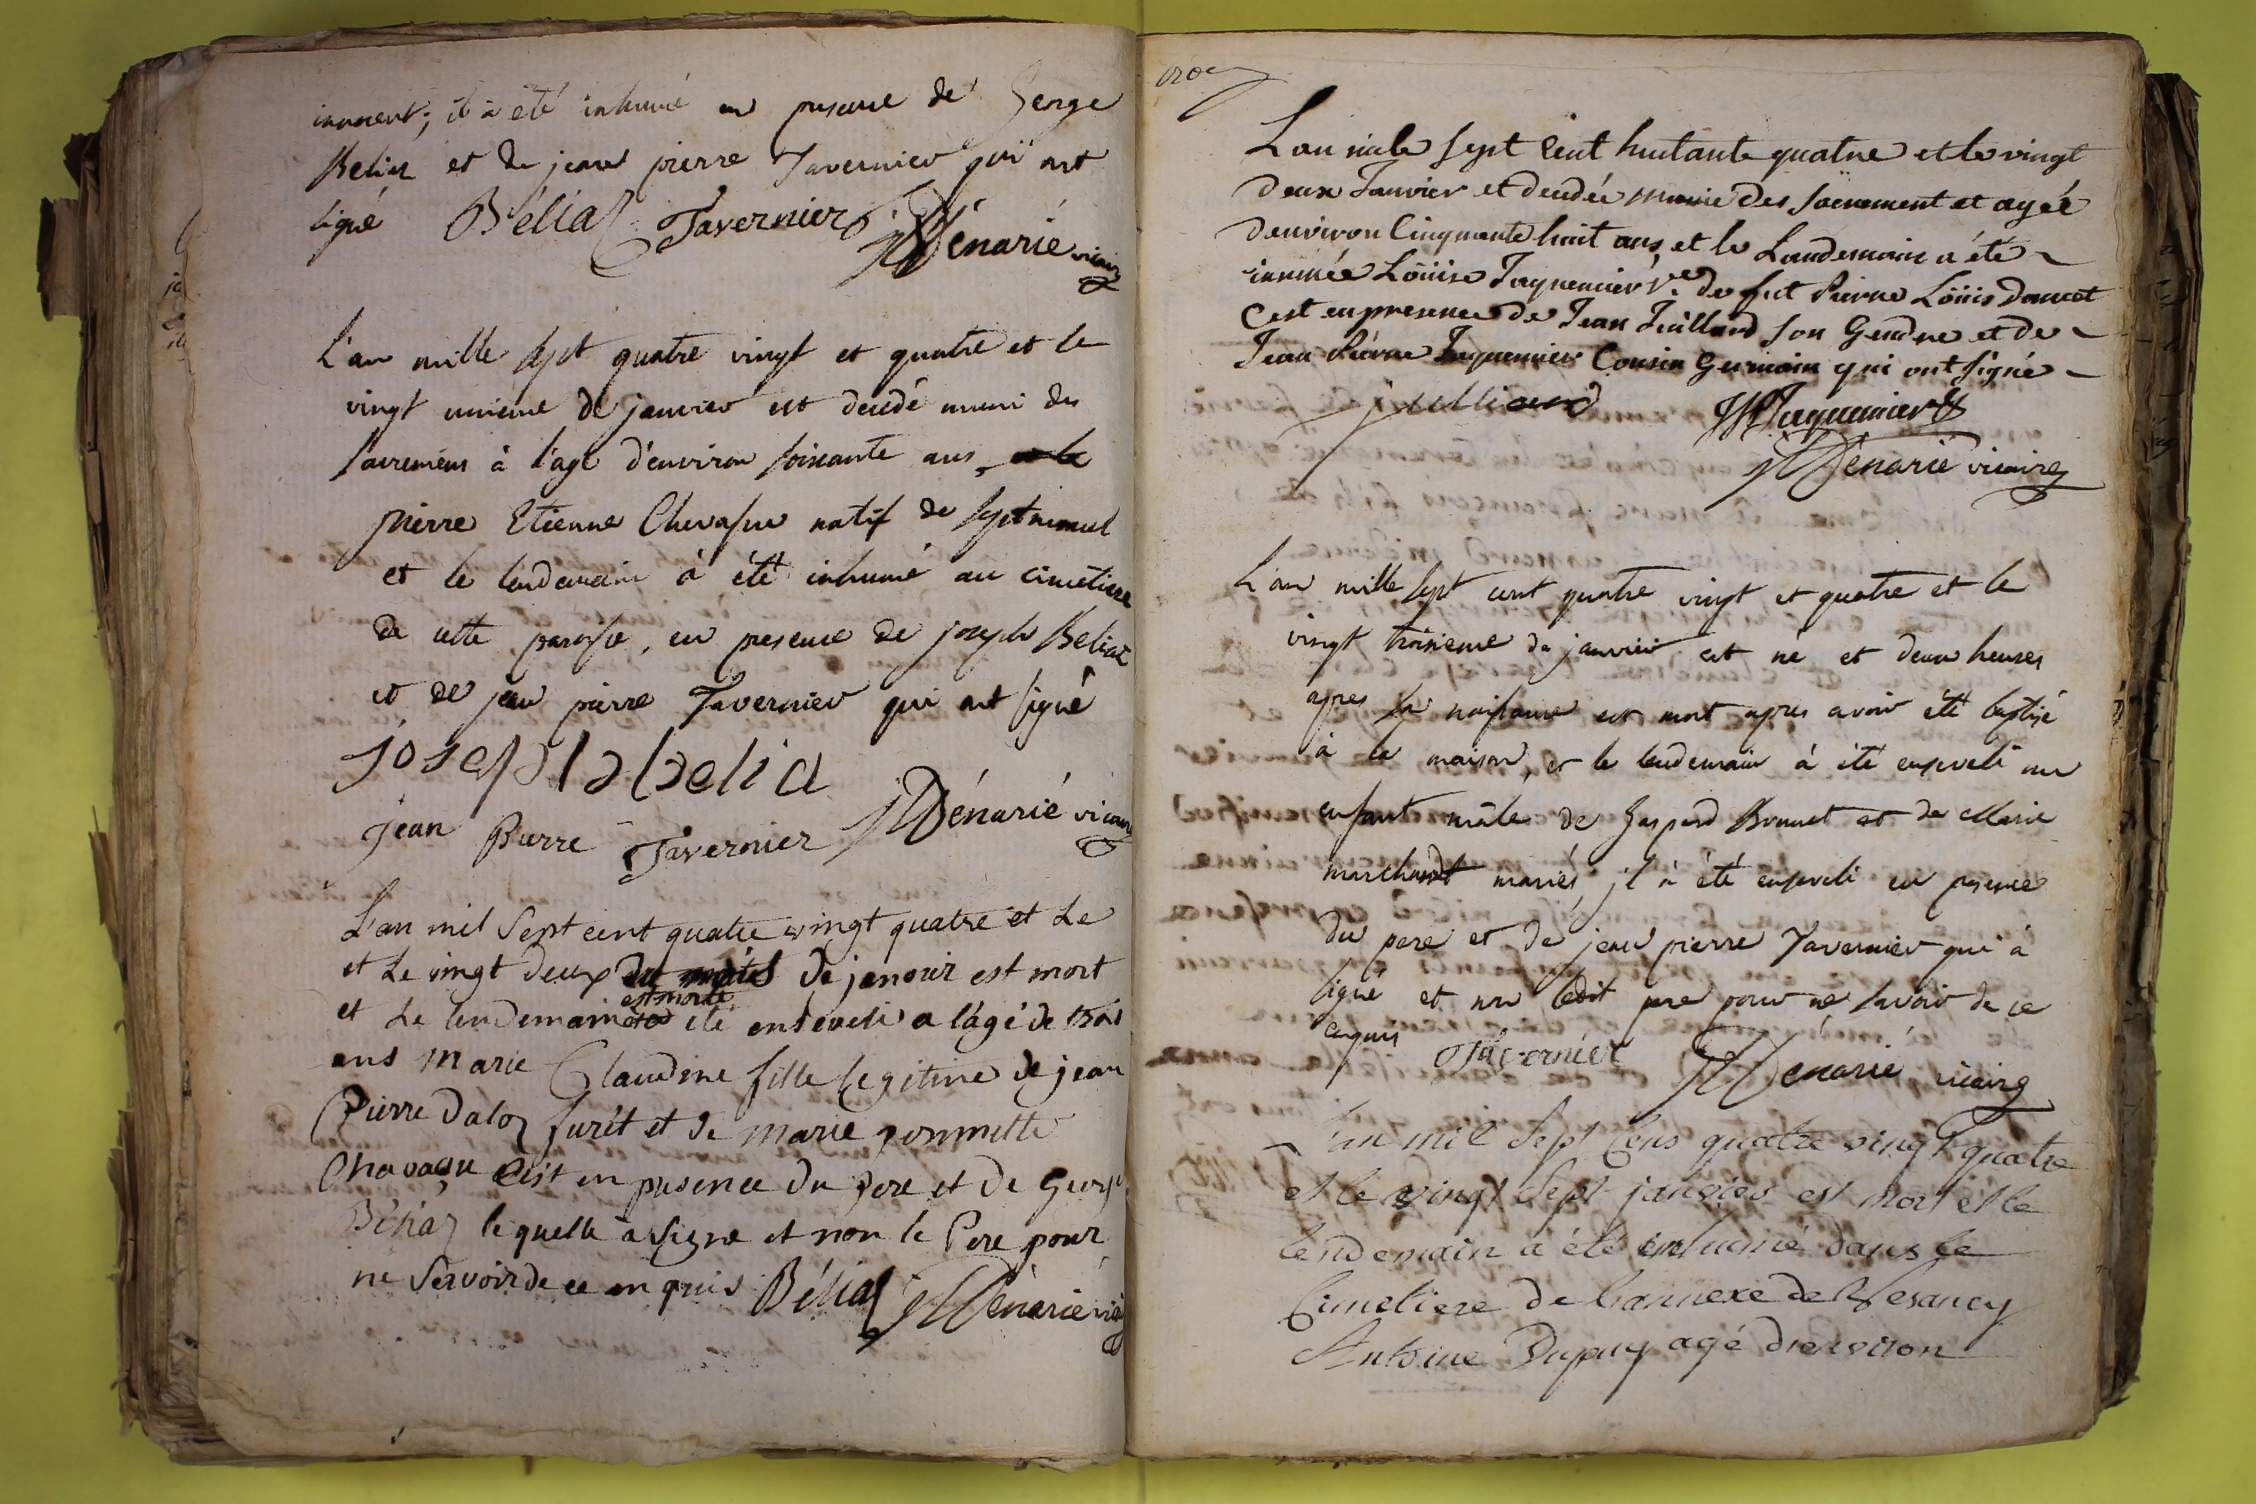 inoncent; il a été inhumé en presence de George
Beliaz et de jean pierre Tavernier qui ont
signé Béliaz Tavernier Dénarié vicaire
L'an mille sept quatre vingt et quatre et le
vingt unieme de janvier est decedé muni des
sacremens à l'age d'environ soixante ans,
pierre Etienne Chevassu natif de septmoncel
et le lendemain à été inhumé au cimetiere
de cette paroisse, en presence de joseph Beliaz
et de jean pierre Tavernier qui ont signé
joseph belia
jean Pierre Tavernier Dénarié vicaire
L'an mil Sept cent quatre vingt quatre et Le
et Le vingt deux du mois de janvier est mort
est morte
et Le lendemain été enseveli a lâgé de trois
ans marie Claudine fille legitime de jean
Pierre daloz furét et de marie
Chavasu cest en presence du pere et de George
Béliaz le quelle a signe et non le Pere pour
ne Servoir de ce enquis Béliaz Dénarié
L'an mile sept Cent huitante quatre et le vingt
deux Janvier et decedée munie des sacrement et agée
d'environ Cinquante huit ans, et le Landemain a été
inumée Löuise Juquemier Ve de fut Pierre Löuis
C'est en presence de Jean Juilland son Gendre et de
Jean Piérre Juquemier Cousin Germain qui ont signé
juilliard JPJuquemier
Dénarié vicaire
L'an mille sept cent quatre vingt et quatre et le
vingt troisieme de janvier est né et deux heures
apres sa naissance est mort apres avoir été baptisé
à la maison, et le lendemain à été enseveli un
enfant mâle de Gaspard et de Marie
marchand mariés jl à été enseveli en presence
du pere et de jean pierre Tavernier qui à
signé et non ledit pere pour ne savoir de ce
enquis Tavernier Dénarié vicaire
L'an mil Sept Cens quatre vingt quatre
et le vingt Sept janvier est mort et le
lendemain a été inhumé dans le
Cimetiere de L'annexe de Vesancy
Antoine Dupuy agé d'environ